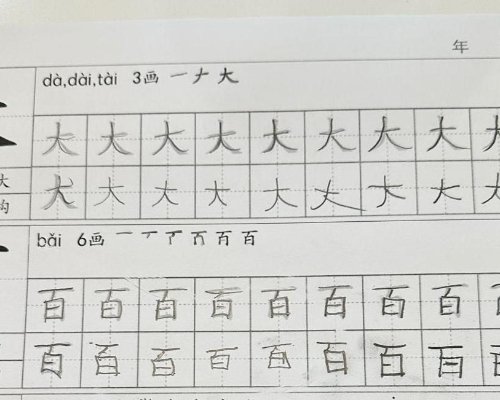 年
dà,dài,tài 3画 一 ナ 大
大 大 大 大 大 大 大 大 大
大 大 大 大 大 大 大 大 大
bǎi 6画 一 丆 丆 百 百 百
百 百 百 百 百 百 百 百 百
百 百 百 百 百 百 百 百 百